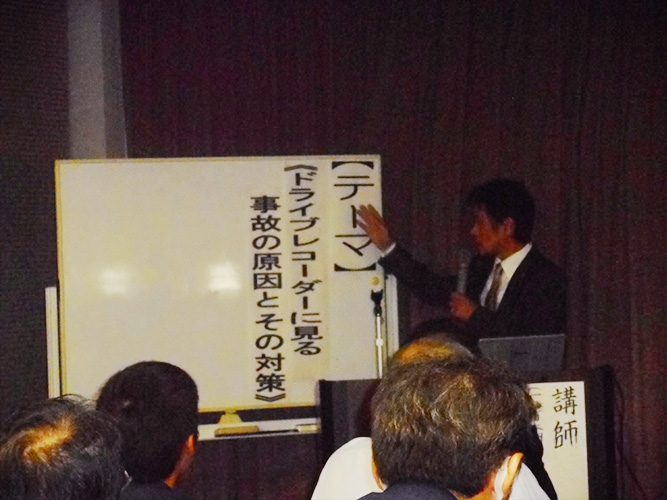 【テーマ】
《ドライブレコーダーに見る
事故の原因とその対策》
講師